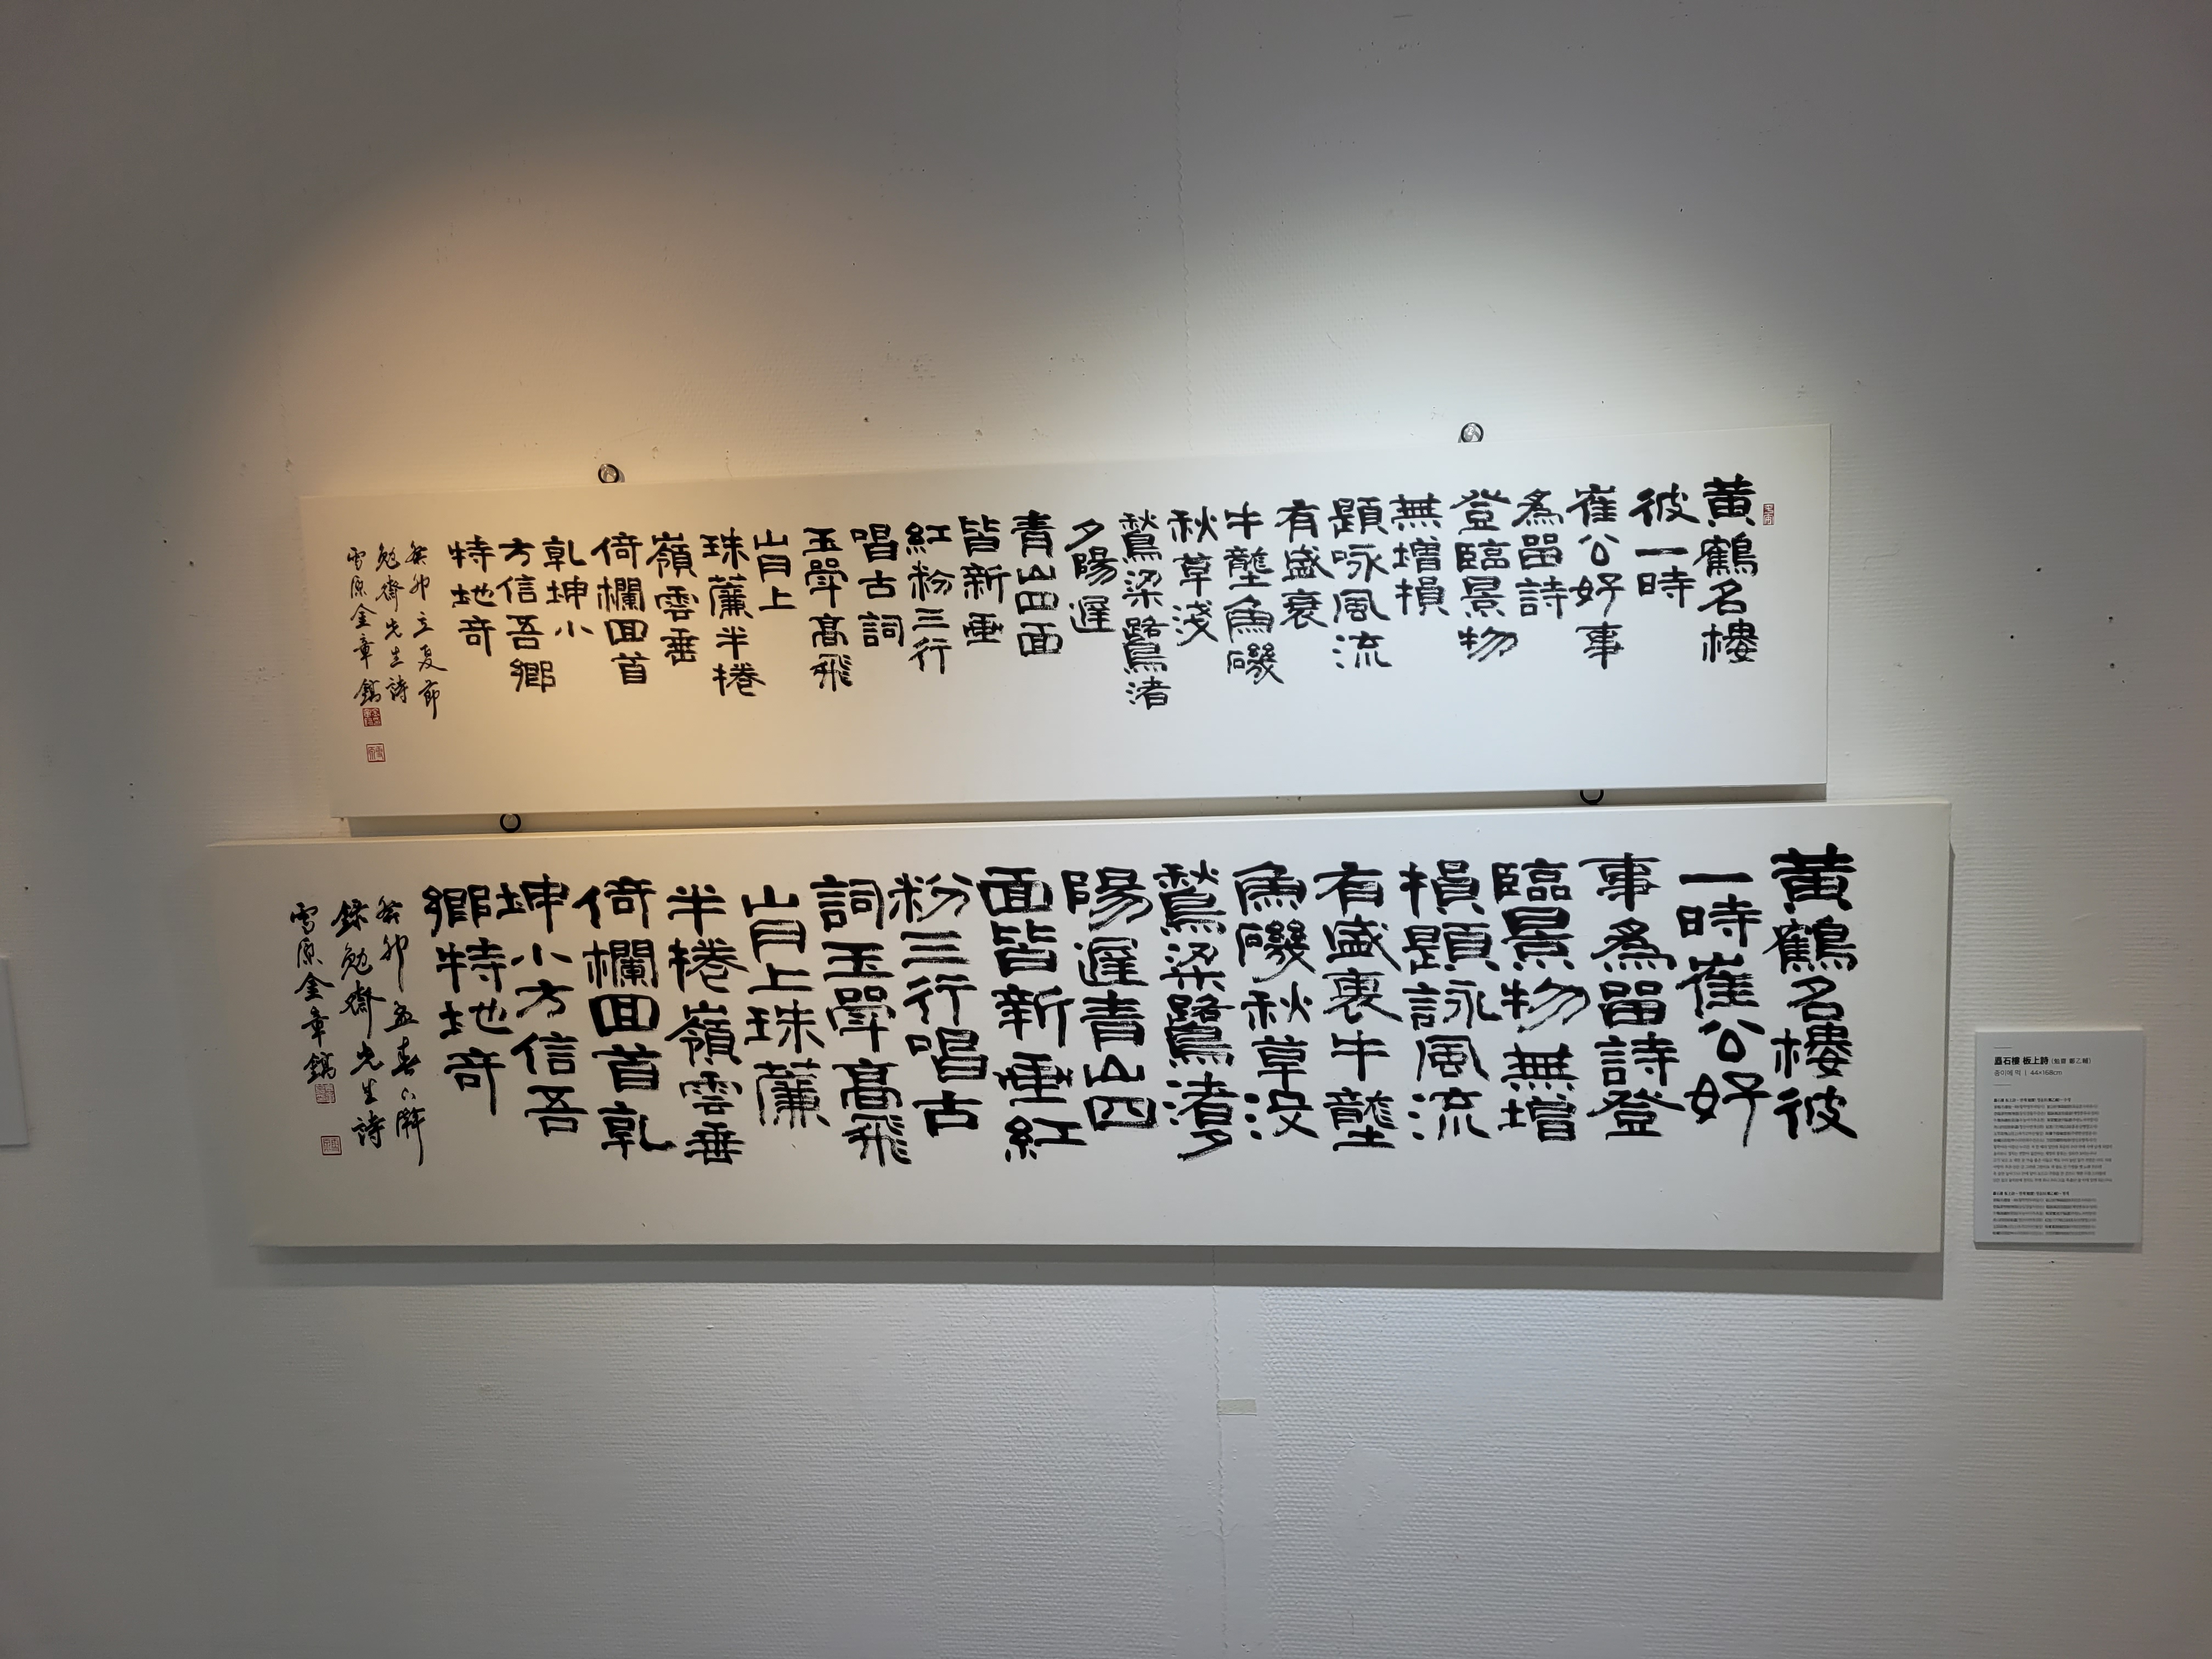 黄鶴名樓
彼一時
崔公好事
為留詩
登臨景物
無增損
題咏風流
有盛衰
牛壟魚磯
秋草淺
鶖梁鷺渚
夕陽遲
青山四面
皆新畫
紅粉三行
唱古詞
玉斝高飛
山月上
珠簾半捲
嶺雲垂
倚欄回首
乾坤小
方信吾鄉
特地奇
癸卯立夏節
勉齋先生詩
雪原金章鎬
黄鶴名樓彼
一時崔公好
事為留詩登
臨景物無增
損題詠風流
有盛衰牛壟
魚磯秋草没
鶖梁鷺渚夕
陽遲青山四
面皆新畫紅
粉三行唱古
詞玉斝高飛
山月上珠簾
半捲嶺雲垂
倚欄回首乾
坤小方信吾
鄉特地奇
癸卯孟春
錄勉齋先生詩
雪原金章鎬
矗石樓 板上詩 (勉齋 鄭乙輔)
종이에 먹 | 44×168cm